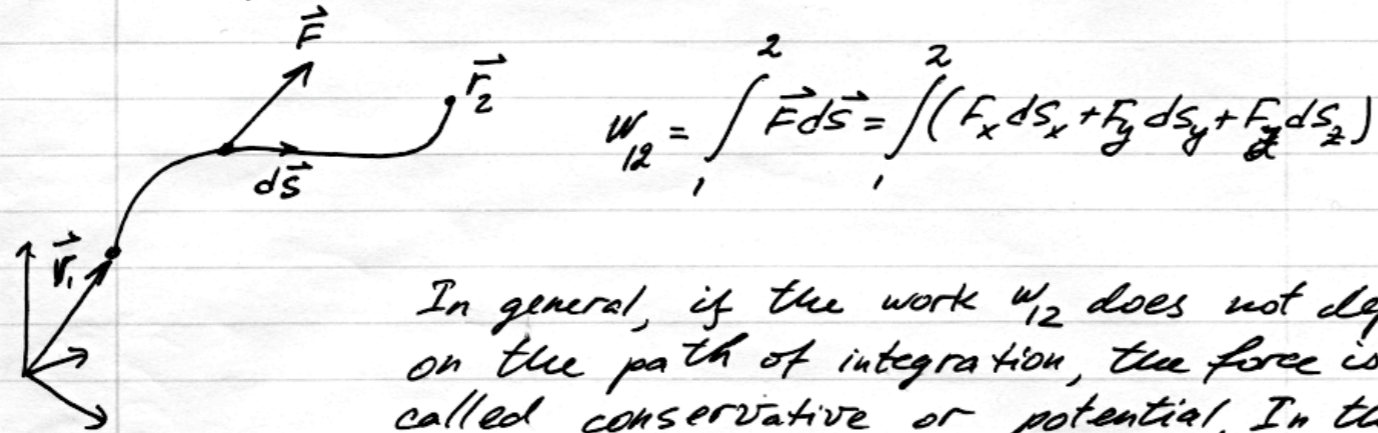 F⃗
r⃗₂
dS⃗
r⃗₁
W₁₂ = ∫₁² F⃗dS⃗ = ∫₁² (FₓdSₓ + F_y dS_y + F_z dS_z)
In general, if the work W₁₂ does not de
on the path of integration, the force is
called conservative or potential. In th